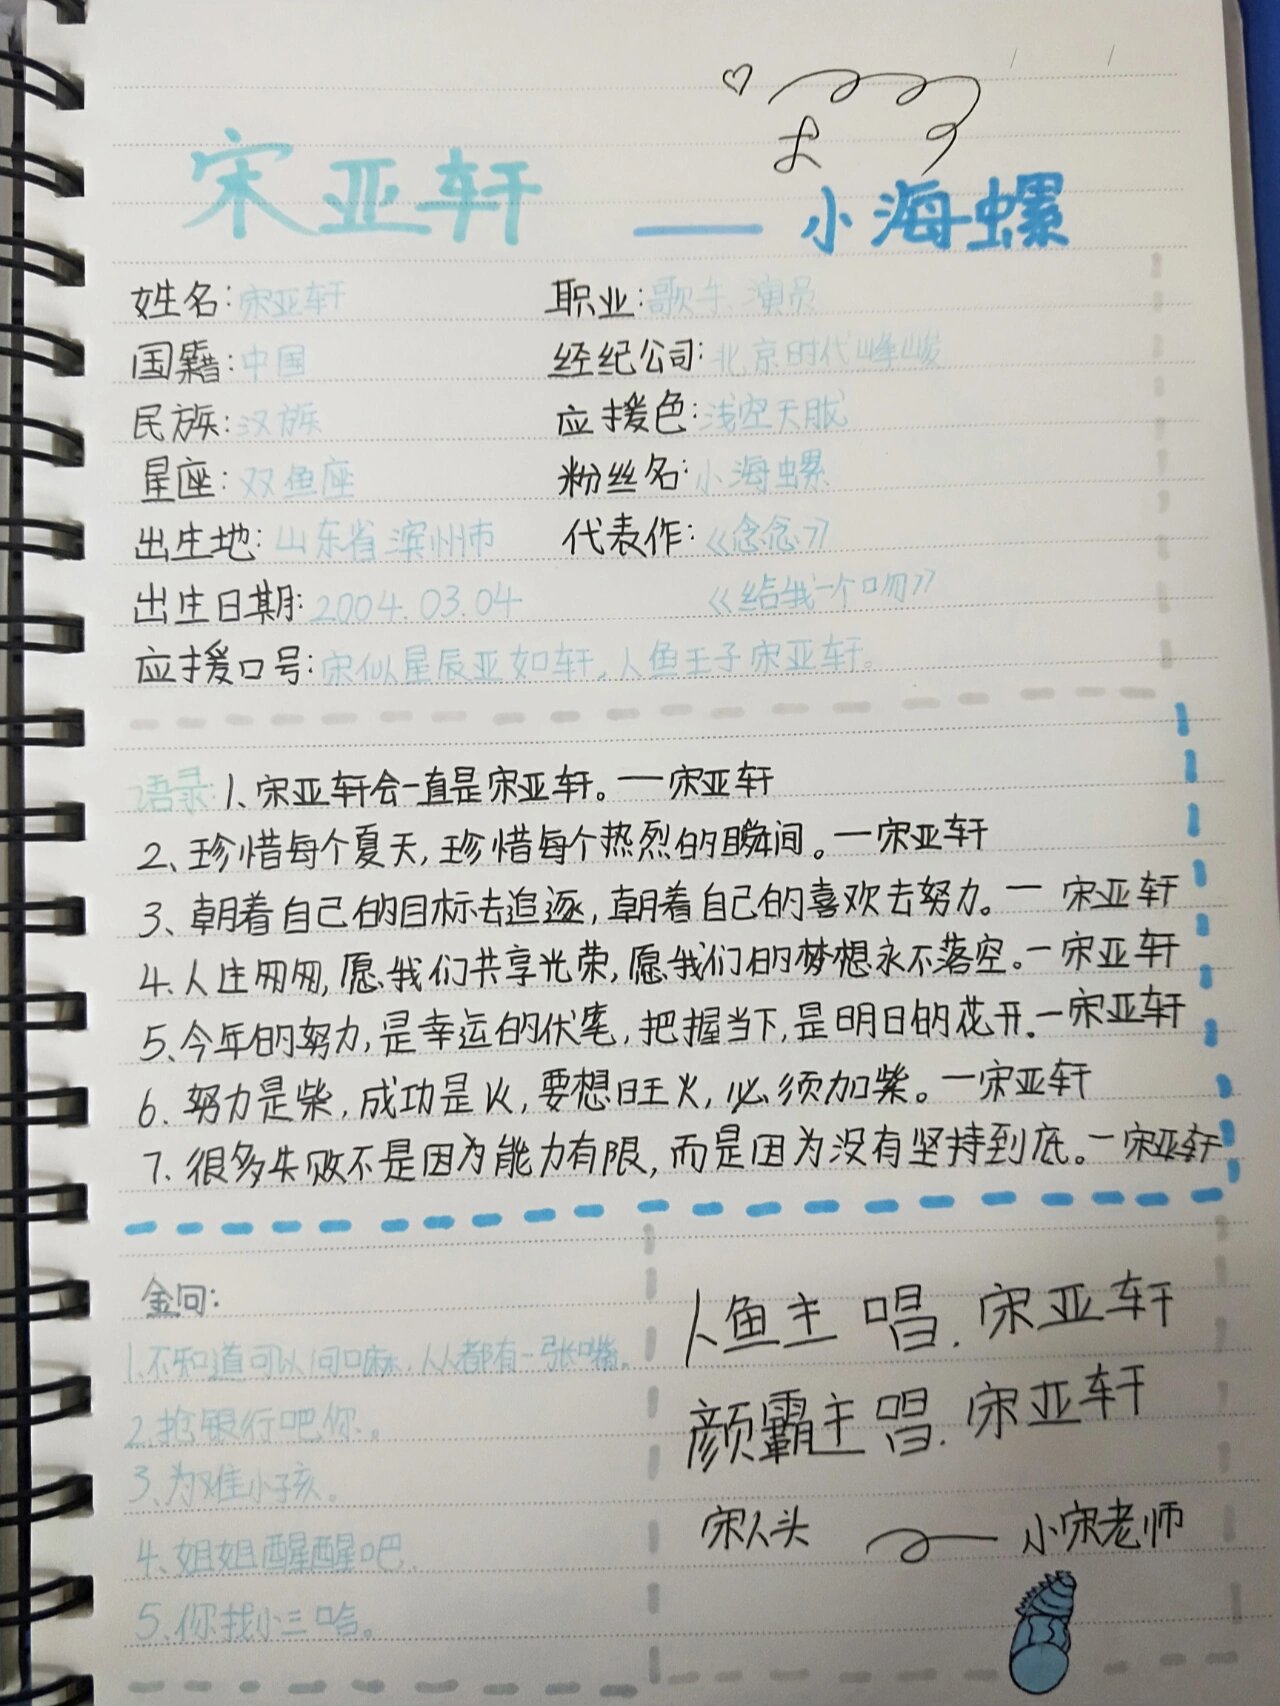 宋亚轩 —— 小海螺
姓名:宋亚轩 职业:歌手、演员
国籍:中国 经纪公司:北京时代峰峻
民族:汉族 应援色:浅空天眠
星座:双鱼座 粉丝名:小海螺
出生地:山东省滨州市 代表作:《念念》
出生日期:2004.03.04 《给我一个吻》
应援口号:宋似星辰亚如轩,人鱼王子宋亚轩。
语录:1、宋亚轩会一直是宋亚轩。一宋亚轩
2、珍惜每个夏天,珍惜每个热烈的瞬间。一宋亚轩
3、朝着自己的目标去追逐,朝着自己的喜欢去努力。一 宋亚轩
4、人生匆匆,愿我们共享光荣,愿我们的梦想永不落空。一宋亚轩
5、今年的努力,是幸运的伏笔,把握当下,是明日的花开.一宋亚轩
6、努力是柴,成功是火,要想旺火,必须加柴。一宋亚轩
7、很多失败不是因为能力有限,而是因为没有坚持到底。一宋亚轩
金句:
1.不知道可以问嘛,人人都有一张嘴。
2.抢银行吧你。
3.为难小孩。
4.姐姐醒醒吧.
5.你找小三哈。
人鱼主唱.宋亚轩
颜霸主唱.宋亚轩
宋人头 小宋老师